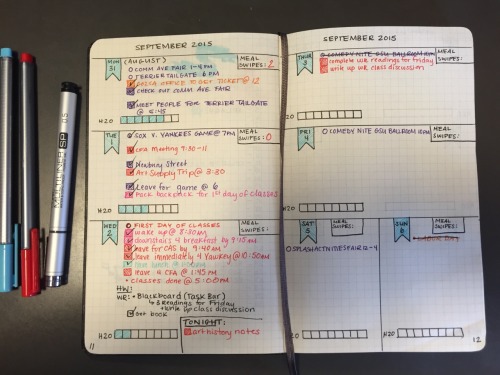 SEPTEMBER 2015
MON 31
(AUGUST)
MEAL SWIPES: 2
O COMM AVE FAIR 1-4PM
O TERRIER TAILGATE 6 PM
OFFICE TO GET TICKET @ 12
CHECK OUT COMM AVE FAIR
MEET PEOPLE FOR TERRIER TAILGATE
@ 5:45
H2O
TUE 1
O SOX V. YANKEES GAME @ 7PM
MEAL SWIPES: 0
CFA Meeting 9:30-11
Newbury Street
Art Supply Trip @ 3:30
Leave for game @ 6
Pack backpack for 1st day of classes
H2O
WED 2
O FIRST DAY OF CLASSES
MEAL SWIPES:
wake up @ 8:30AM
downstairs 4 breakfast by 9:15AM
leave for CAS by 9:40AM
leave immediately 4 Yawkey @ 10:50AM
leave 4 CFA @ 1:45 PM
• classes done @ 5:00PM
HW:
WR: • Blackboard (Task Bar)
↳ 3 Readings for Friday
• write up class discussion
get book
TONIGHT:
art history notes
H2O
11
SEPTEMBER 2015
THUR 3
O COMEDY NITE GSU BALLROOM
MEAL SWIPES:
complete WR readings for friday
write up WR class discussion
H2O
FRI 4
O COMEDY NITE GSU BALLROOM 10PM
MEAL SWIPES:
H2O
SAT 5
MEAL SWIPES:
O SPLASH ACTIVITIES FAIR 12-4
H2O
SUN 6
MEAL SWIPES:
LABOR DAY
H2O
12
MULTILINER SP
0.5